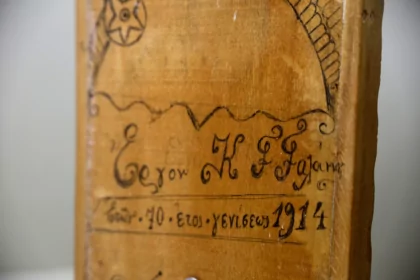 Ἔργον Κ Γ Γαλάνη
Ἐτῶν·70·ἔτος·γενίσεως 1914